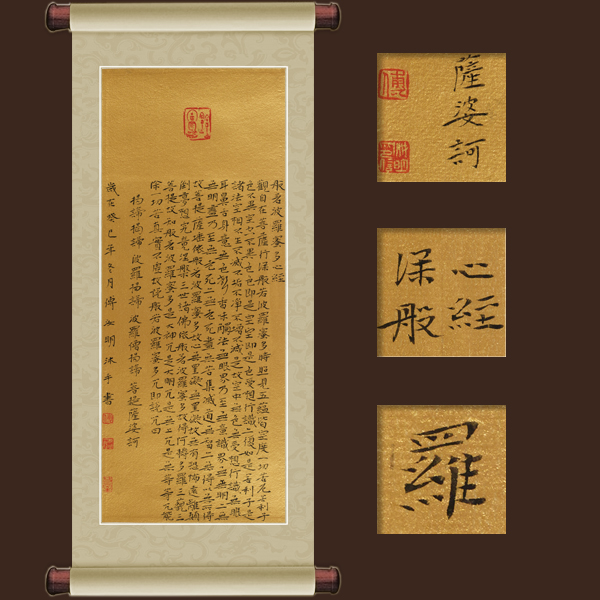 般若波羅蜜多心經
觀自在菩薩行深般若波羅蜜多時照見五蘊皆空度一切苦厄舍利子
色不異空空不異色色即是空空即是色受想行識亦復如是舍利子是
諸法空相不生不滅不垢不淨不增不減是故空中無色無受想行識無眼
耳鼻舌身意無色聲香味觸法無眼界乃至無意識界無無明亦無
無明盡乃至無老死亦無老死盡無苦集滅道無智亦無得以無所得
故菩提薩埵依般若波羅蜜多故心無罣礙無罣礙故無有恐怖遠離顛
倒夢想究竟涅槃三世諸佛依般若波羅蜜多故得阿耨多羅三藐三
菩提故知般若波羅蜜多是大神咒是大明咒是無上咒是無等等咒能
除一切苦真實不虛故說般若波羅蜜多咒即說咒曰
揭諦揭諦 波羅揭諦 波羅僧揭諦 菩提薩婆訶
歲在癸巳年冬月傅 明沐手書
薩婆訶
傅
心經
深般
羅